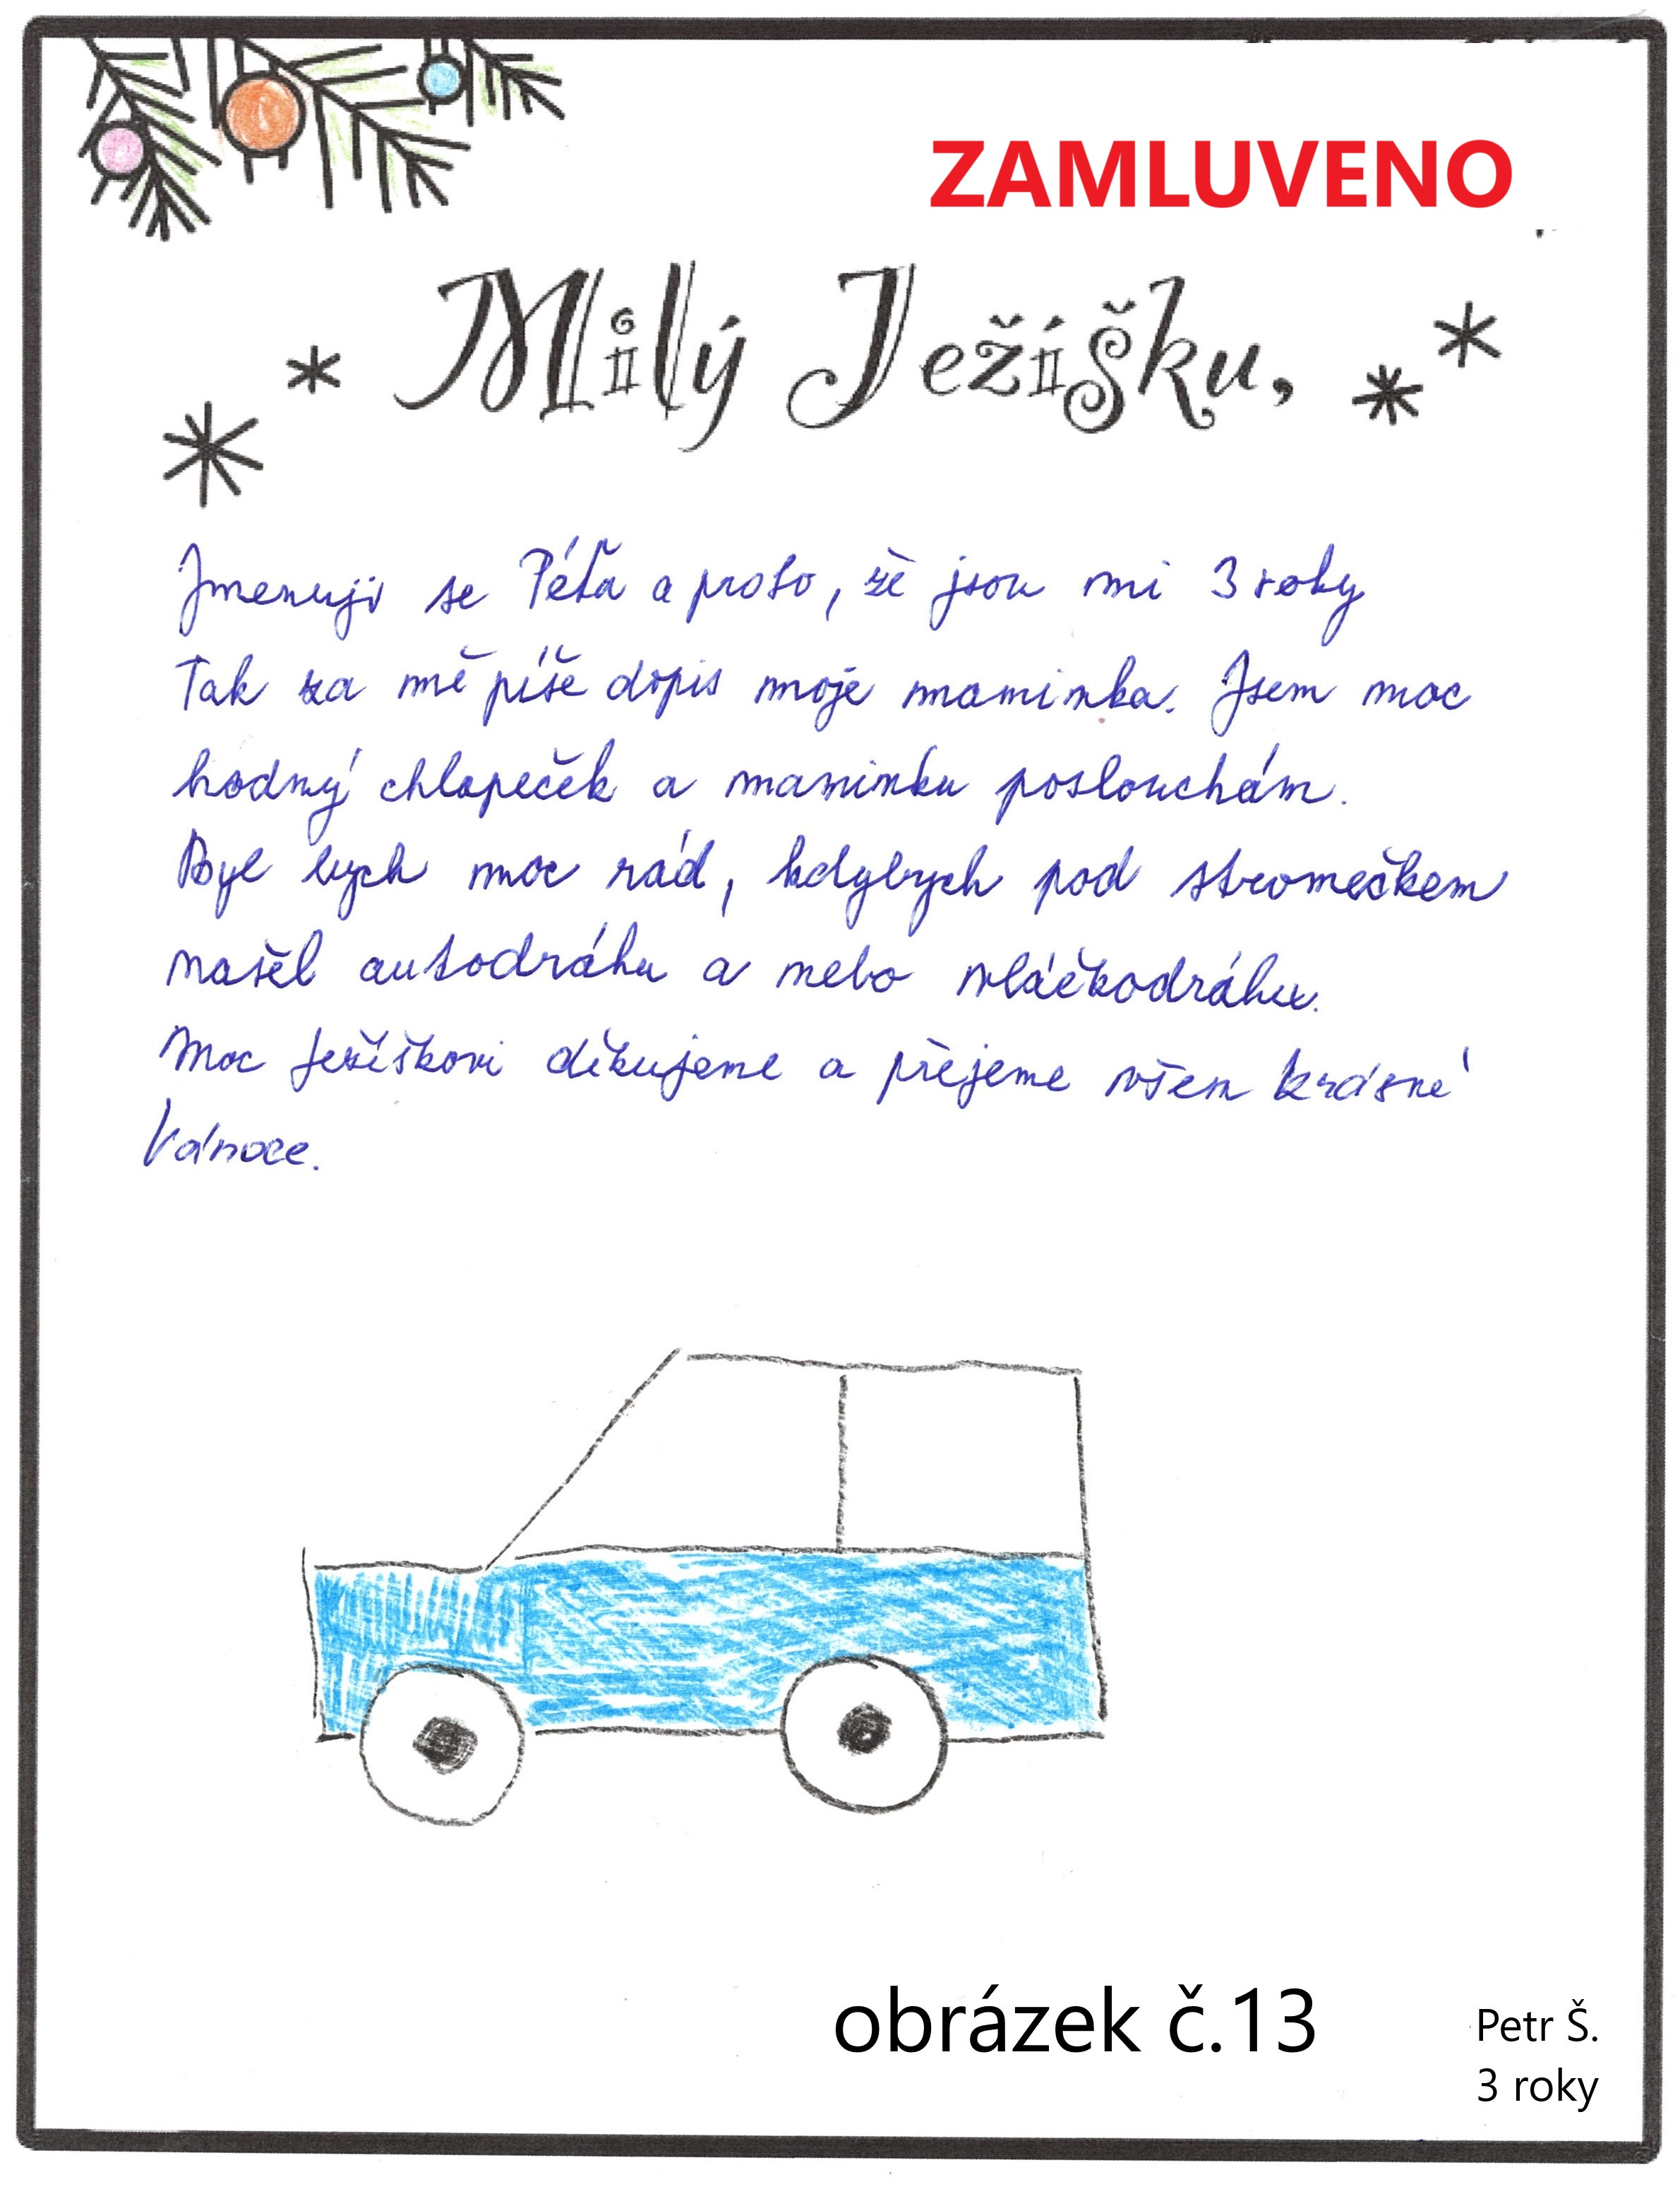 ZAMLUVENO
Milý Ježíšku,
Jmenuji se Péťa a proto, že jsou mi 3 roky
Tak za mě píše dopis moje maminka. Jsem moc
hodný chlapeček a maminku poslouchám.
Byl bych moc rád, kdybych pod stromečkem
našel autodráhu a nebo vláčkodráhu.
Moc Ježíškovi děkujeme a přejeme všem krásné
Vánoce.
obrázek č.13
Petr Š.
3 roky